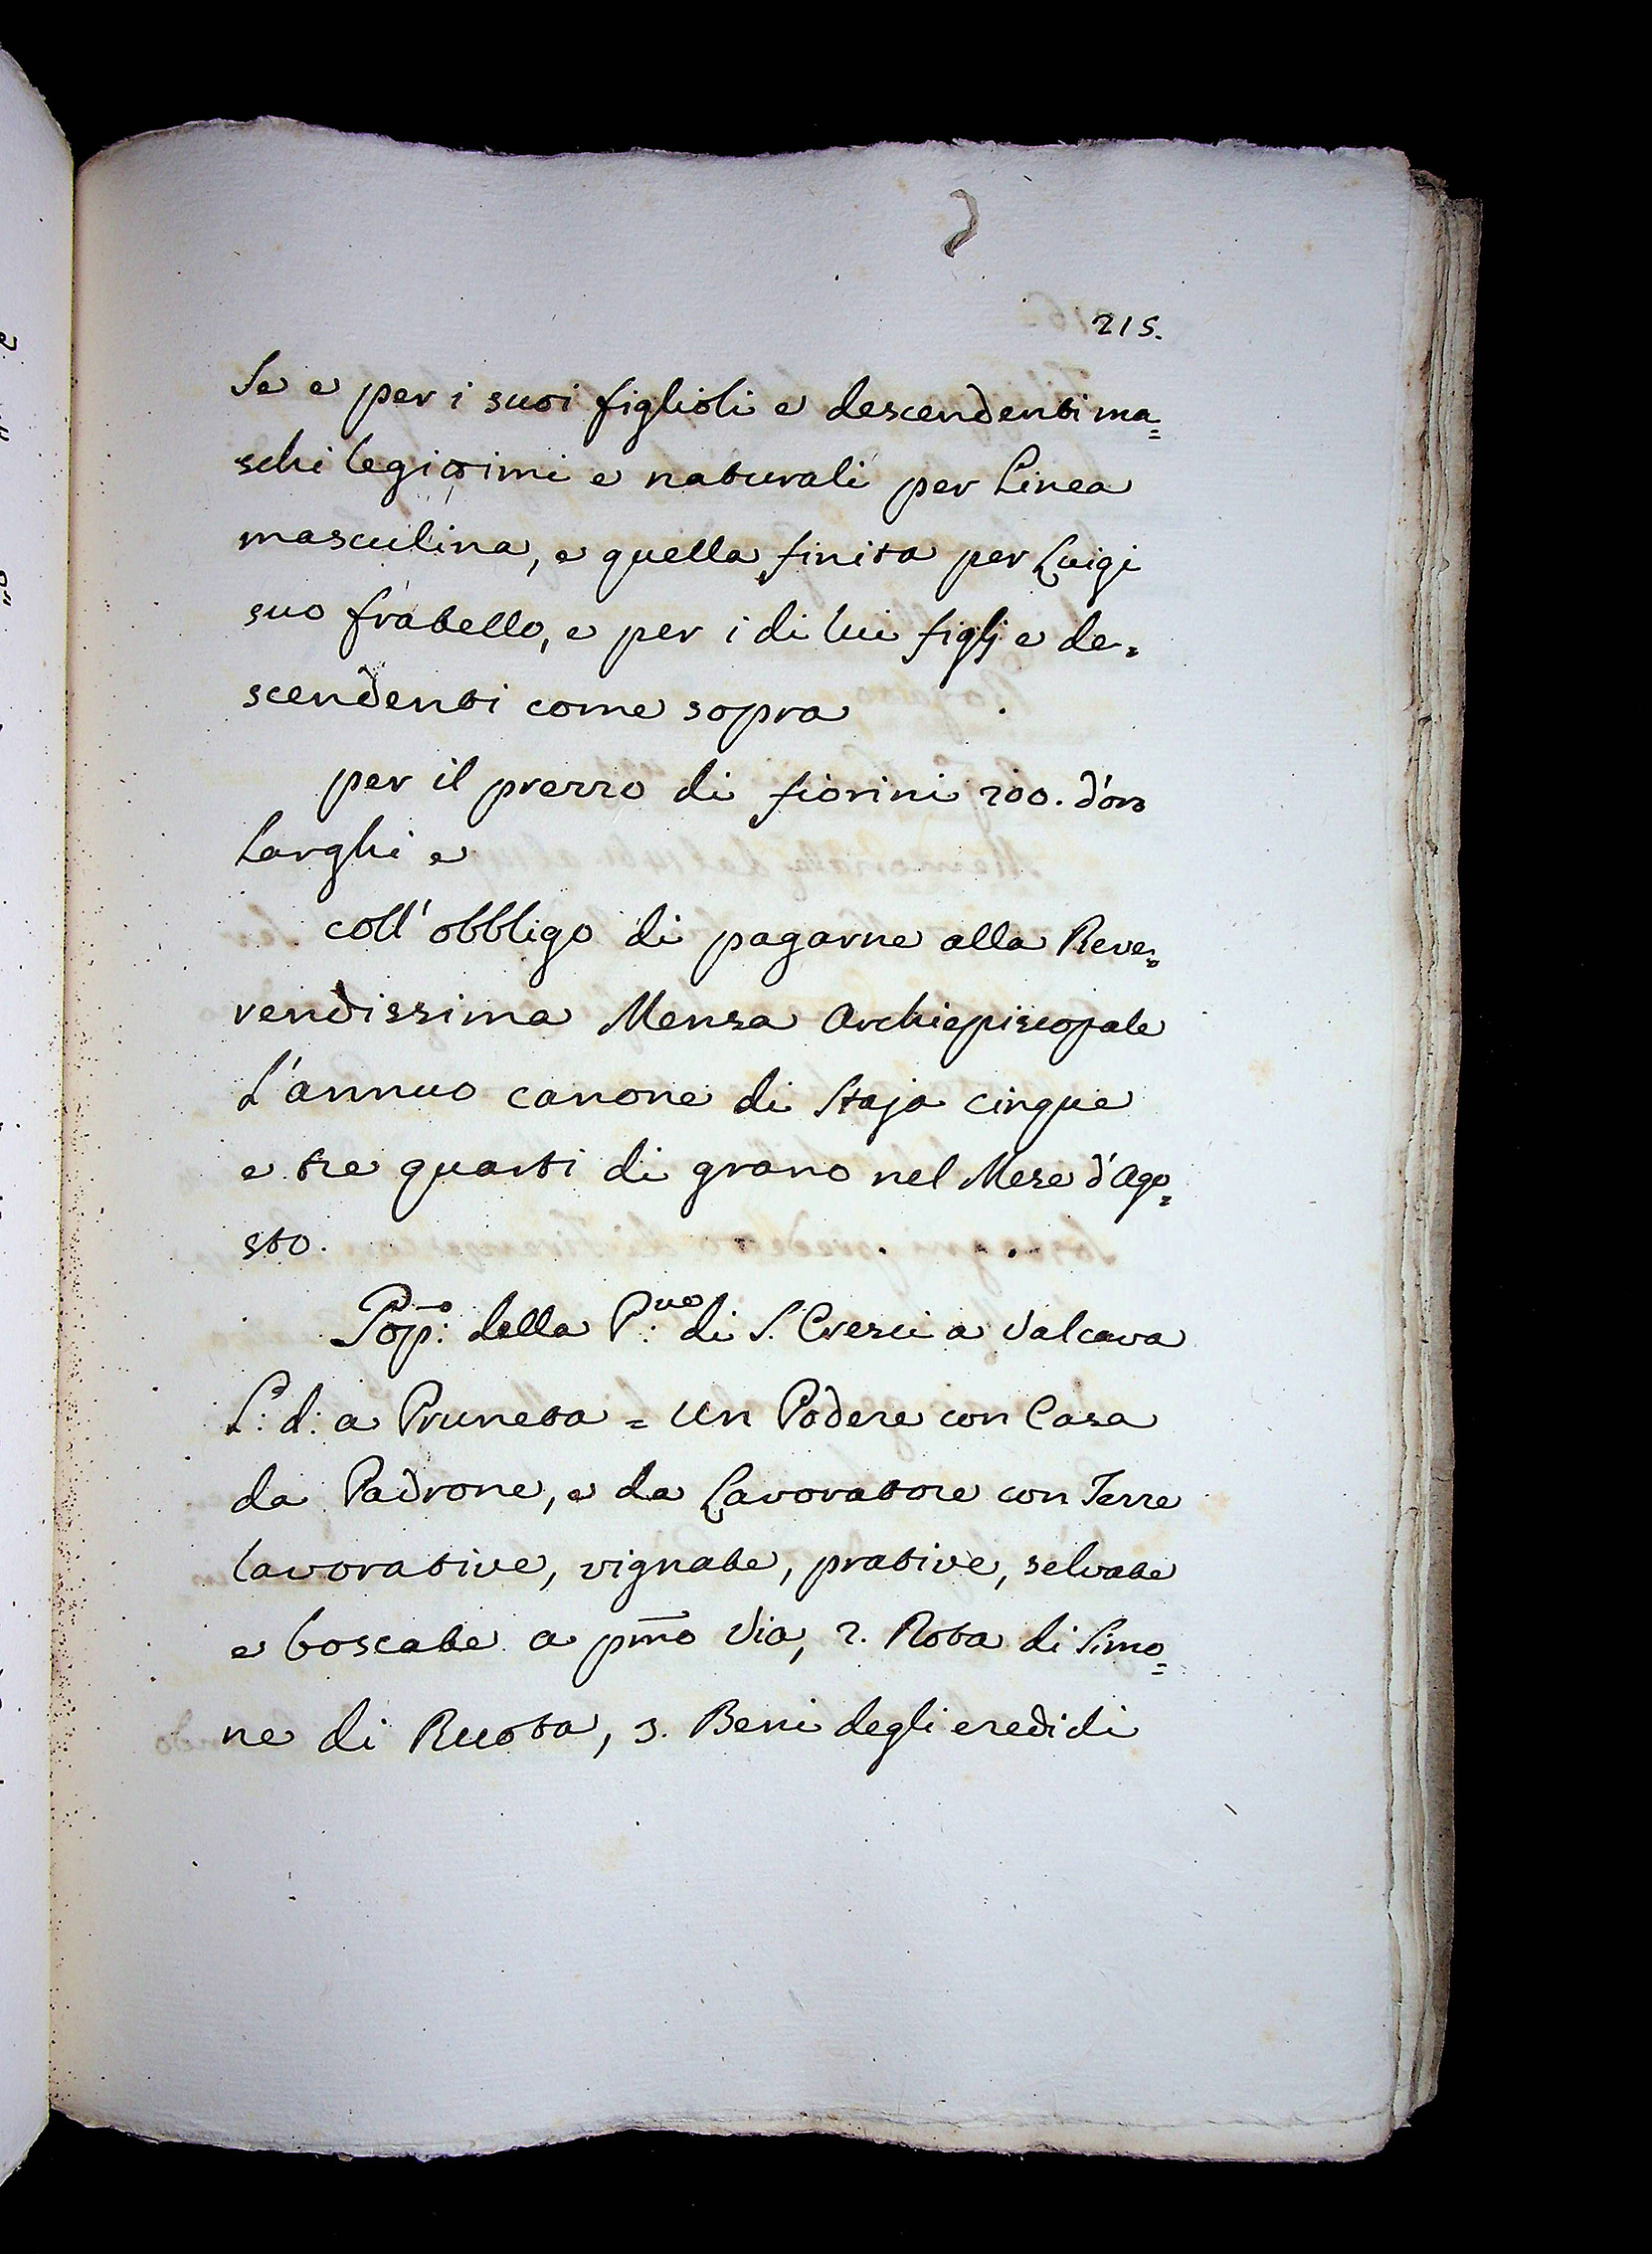 215.
Se e per i suoi figlioli e descendenti ma=
schi legittimi e naturali per Linea
masculina, e quella finita per Luigi
suo fratello, e per i di lui figlj e de=
scendenti come sopra
per il prezzo di fiorini 200. d'oro
Larghi e
coll' obbligo di pagarne alla Reve=
rendissima Mensa Archiepiscopale
L'annuo canone di Staja cinque
e tre quarti di grano nel Mese d'Ago=
sto.
Pop:o della P:ve di S. Cresci a Valcava
L: d: a Pruneta = Un Podere con Casa
da Padrone, e da Lavoratore con Terre
lavorative, vignate, prative, selvate
e boscate a pmo Via, 2. Rota di Simo=
ne di Ruota, 3. Beni degli eredi di